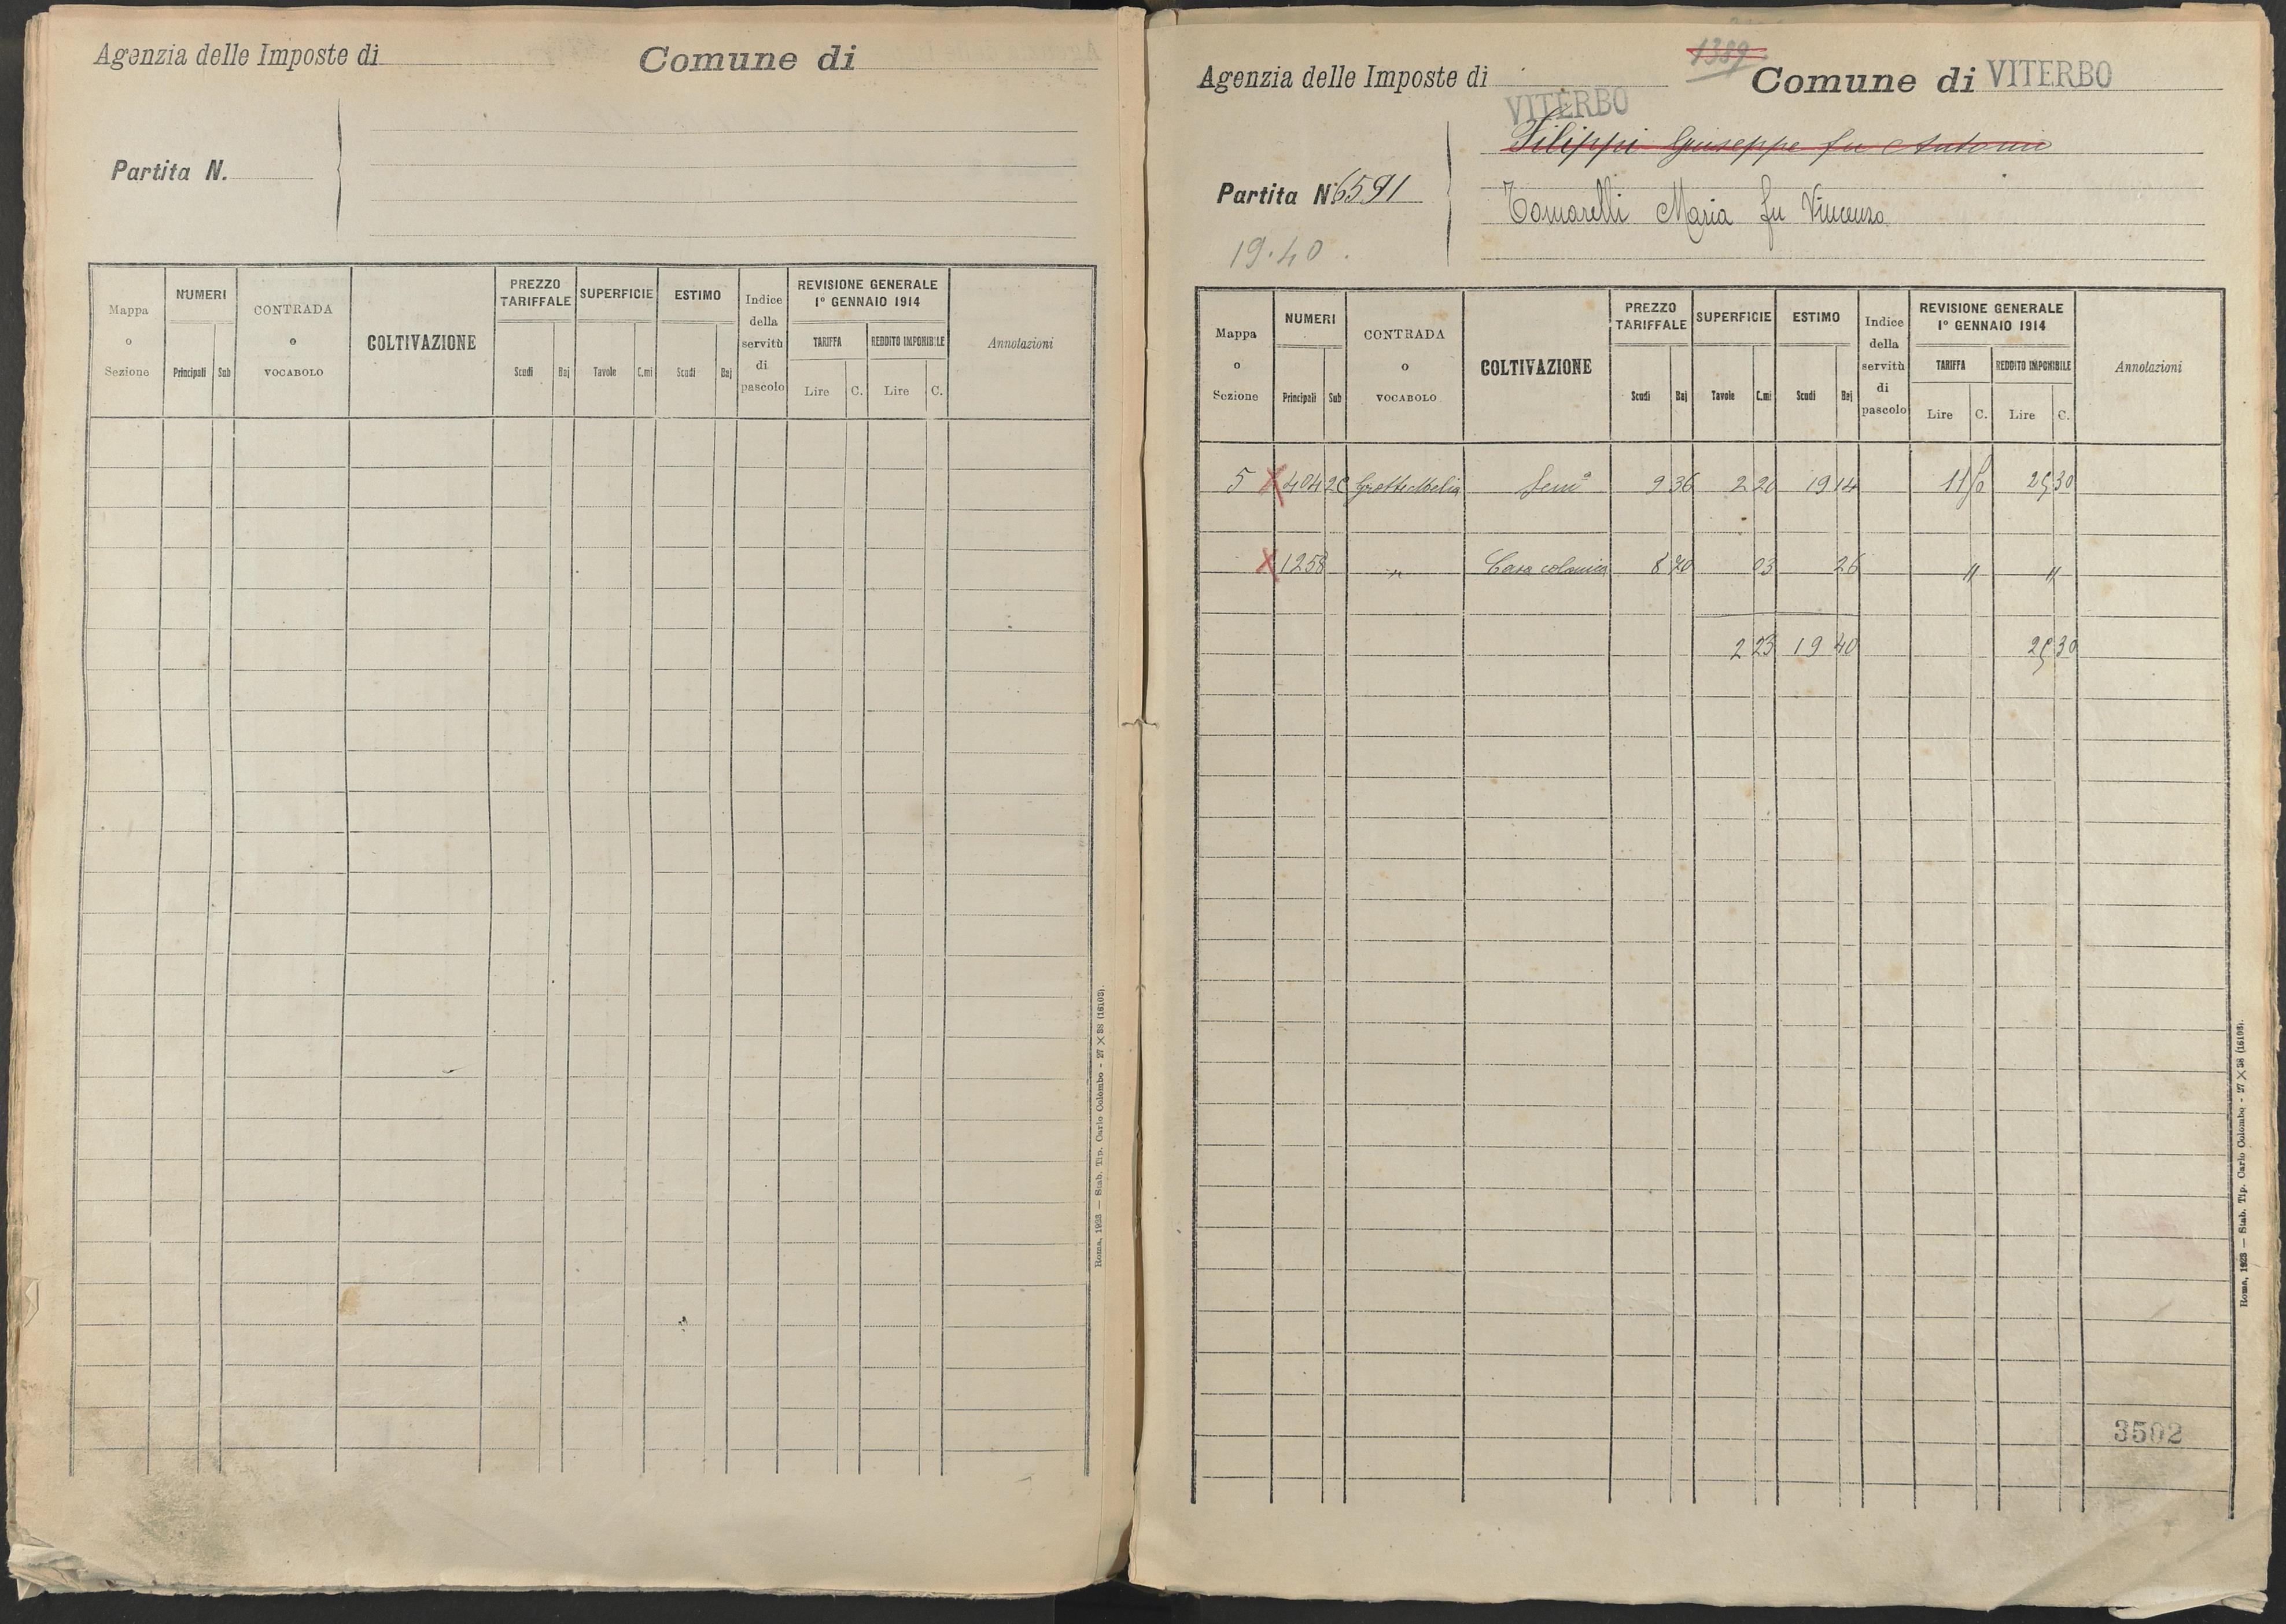 Agenzia delle Imposte di
Comune di
Partita N.
Mappa o Sezione
NUMERI
Principali
Sub
CONTRADA o VOCABOLO
COLTIVAZIONE
PREZZO TARIFFALE
Scudi
Baj
SUPERFICIE
Tavole
C.mi
ESTIMO
Scudi
Baj
Indice della servitù di pascolo
REVISIONE GENERALE
1° GENNAIO 1914
TARIFFA
REDDITO IMPONIBILE
Lire C. Lire C.
Annotazioni
Roma, 1923 — Stab. Tip. Carlo Colombo - 27 X 38 (16103).
1389
Agenzia delle Imposte di VITERBO
Comune di VITERBO
Filippi Giuseppe fu Antonio
Partita N. 6591
Tomarelli Maria fu Vincenzo
19.40.
Mappa o Sezione
NUMERI
Principali
Sub
CONTRADA o VOCABOLO
COLTIVAZIONE
PREZZO TARIFFALE
Scudi
Baj
SUPERFICIE
Tavole
C.mi
ESTIMO
Scudi
Baj
Indice della servitù di pascolo
REVISIONE GENERALE
1° GENNAIO 1914
TARIFFA
REDDITO IMPONIBILE
Lire C. Lire C.
Annotazioni
5 X 404 Semo 9 36 2 20 19 14 30
X 1258 " Casa colonica 8 70 03 26 " "
2 23 19 40 30
3502
Roma, 1923 — Stab. Tip. Carlo Colombo - 27 X 38 (16103).